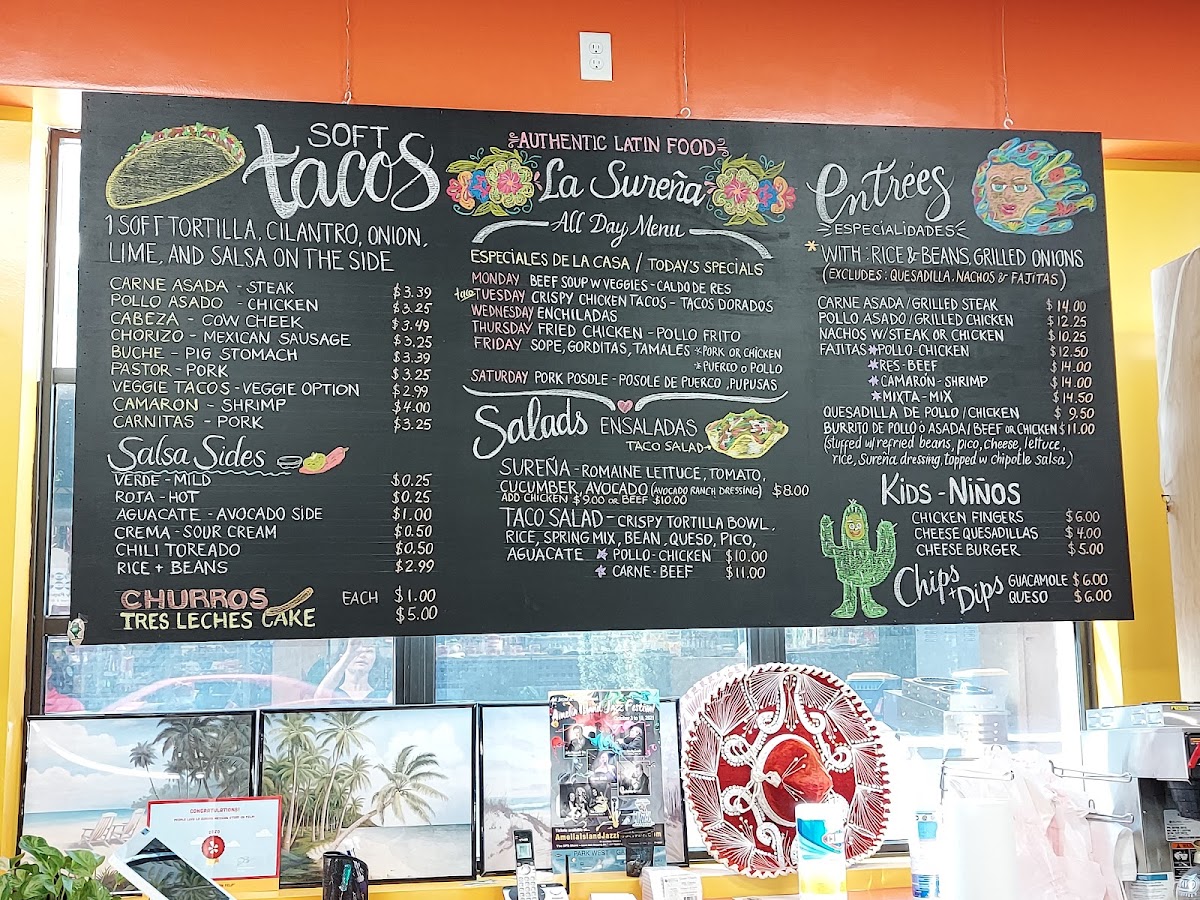 SOFT
tacos
1 SOFT TORTILLA, CILANTRO, ONION,
LIME, AND SALSA ON THE SIDE
CARNE ASADA - STEAK $3.39
POLLO ASADO - CHICKEN $3.25
CABEZA - COW CHEEK $3.49
CHORIZO - MEXICAN SAUSAGE $3.25
BUCHE - PIG STOMACH $3.39
PASTOR - PORK $3.25
VEGGIE TACOS - VEGGIE OPTION $2.99
CAMARON - SHRIMP $4.00
CARNITAS - PORK $3.25
Salsa Sides
VERDE - MILD $0.25
ROJA - HOT $0.25
AGUACATE - AVOCADO SIDE $1.00
CREMA - SOUR CREAM $0.50
CHILI TOREADO $0.50
RICE + BEANS $2.99
CHURROS EACH $1.00
TRES LECHES CAKE $5.00
AUTHENTIC LATIN FOOD
La Sureña
All Day Menu
ESPECIALES DE LA CASA / TODAY'S SPECIALS
MONDAY BEEF SOUP W VEGGIES - CALDO DE RES
taco TUESDAY CRISPY CHICKEN TACOS - TACOS DORADOS
WEDNESDAY ENCHILADAS
THURSDAY FRIED CHICKEN - POLLO FRITO
FRIDAY SOPE, GORDITAS, TAMALES *PORK OR CHICKEN
*PUERCO O POLLO
SATURDAY PORK POSOLE - POSOLE DE PUERCO, PUPUSAS
Salads ENSALADAS
TACO SALAD→
SUREÑA - ROMAINE LETTUCE, TOMATO,
CUCUMBER, AVOCADO (AVOCADO RANCH DRESSING) $8.00
ADD CHICKEN $9.00 OR BEEF $10.00
TACO SALAD - CRISPY TORTILLA BOWL,
RICE, SPRING MIX, BEAN, QUESO, PICO,
AGUACATE * POLLO - CHICKEN $10.00
* CARNE - BEEF $11.00
Entrées
ESPECIALIDADES
* WITH: RICE & BEANS, GRILLED ONIONS
(EXCLUDES: QUESADILLA, NACHOS & FAJITAS)
CARNE ASADA / GRILLED STEAK $14.00
POLLO ASADO / GRILLED CHICKEN $12.25
NACHOS W/STEAK OR CHICKEN $10.25
FAJITAS *POLLO - CHICKEN $12.50
*RES - BEEF $14.00
*CAMARON - SHRIMP $14.00
*MIXTA - MIX $14.50
QUESADILLA DE POLLO / CHICKEN $9.50
BURRITO DE POLLO O ASADA / BEEF OR CHICKEN $11.00
(stuffed w/ refried beans, pico, cheese, lettuce,
rice, Sureña dressing, topped w chipotle salsa.)
KIDS - NIÑOS
CHICKEN FINGERS $6.00
CHEESE QUESADILLAS $4.00
CHEESE BURGER $5.00
Chips + Dips
GUACAMOLE $6.00
QUESO $6.00
CONGRATULATIONS!
Jazz Festival
PARK WEST